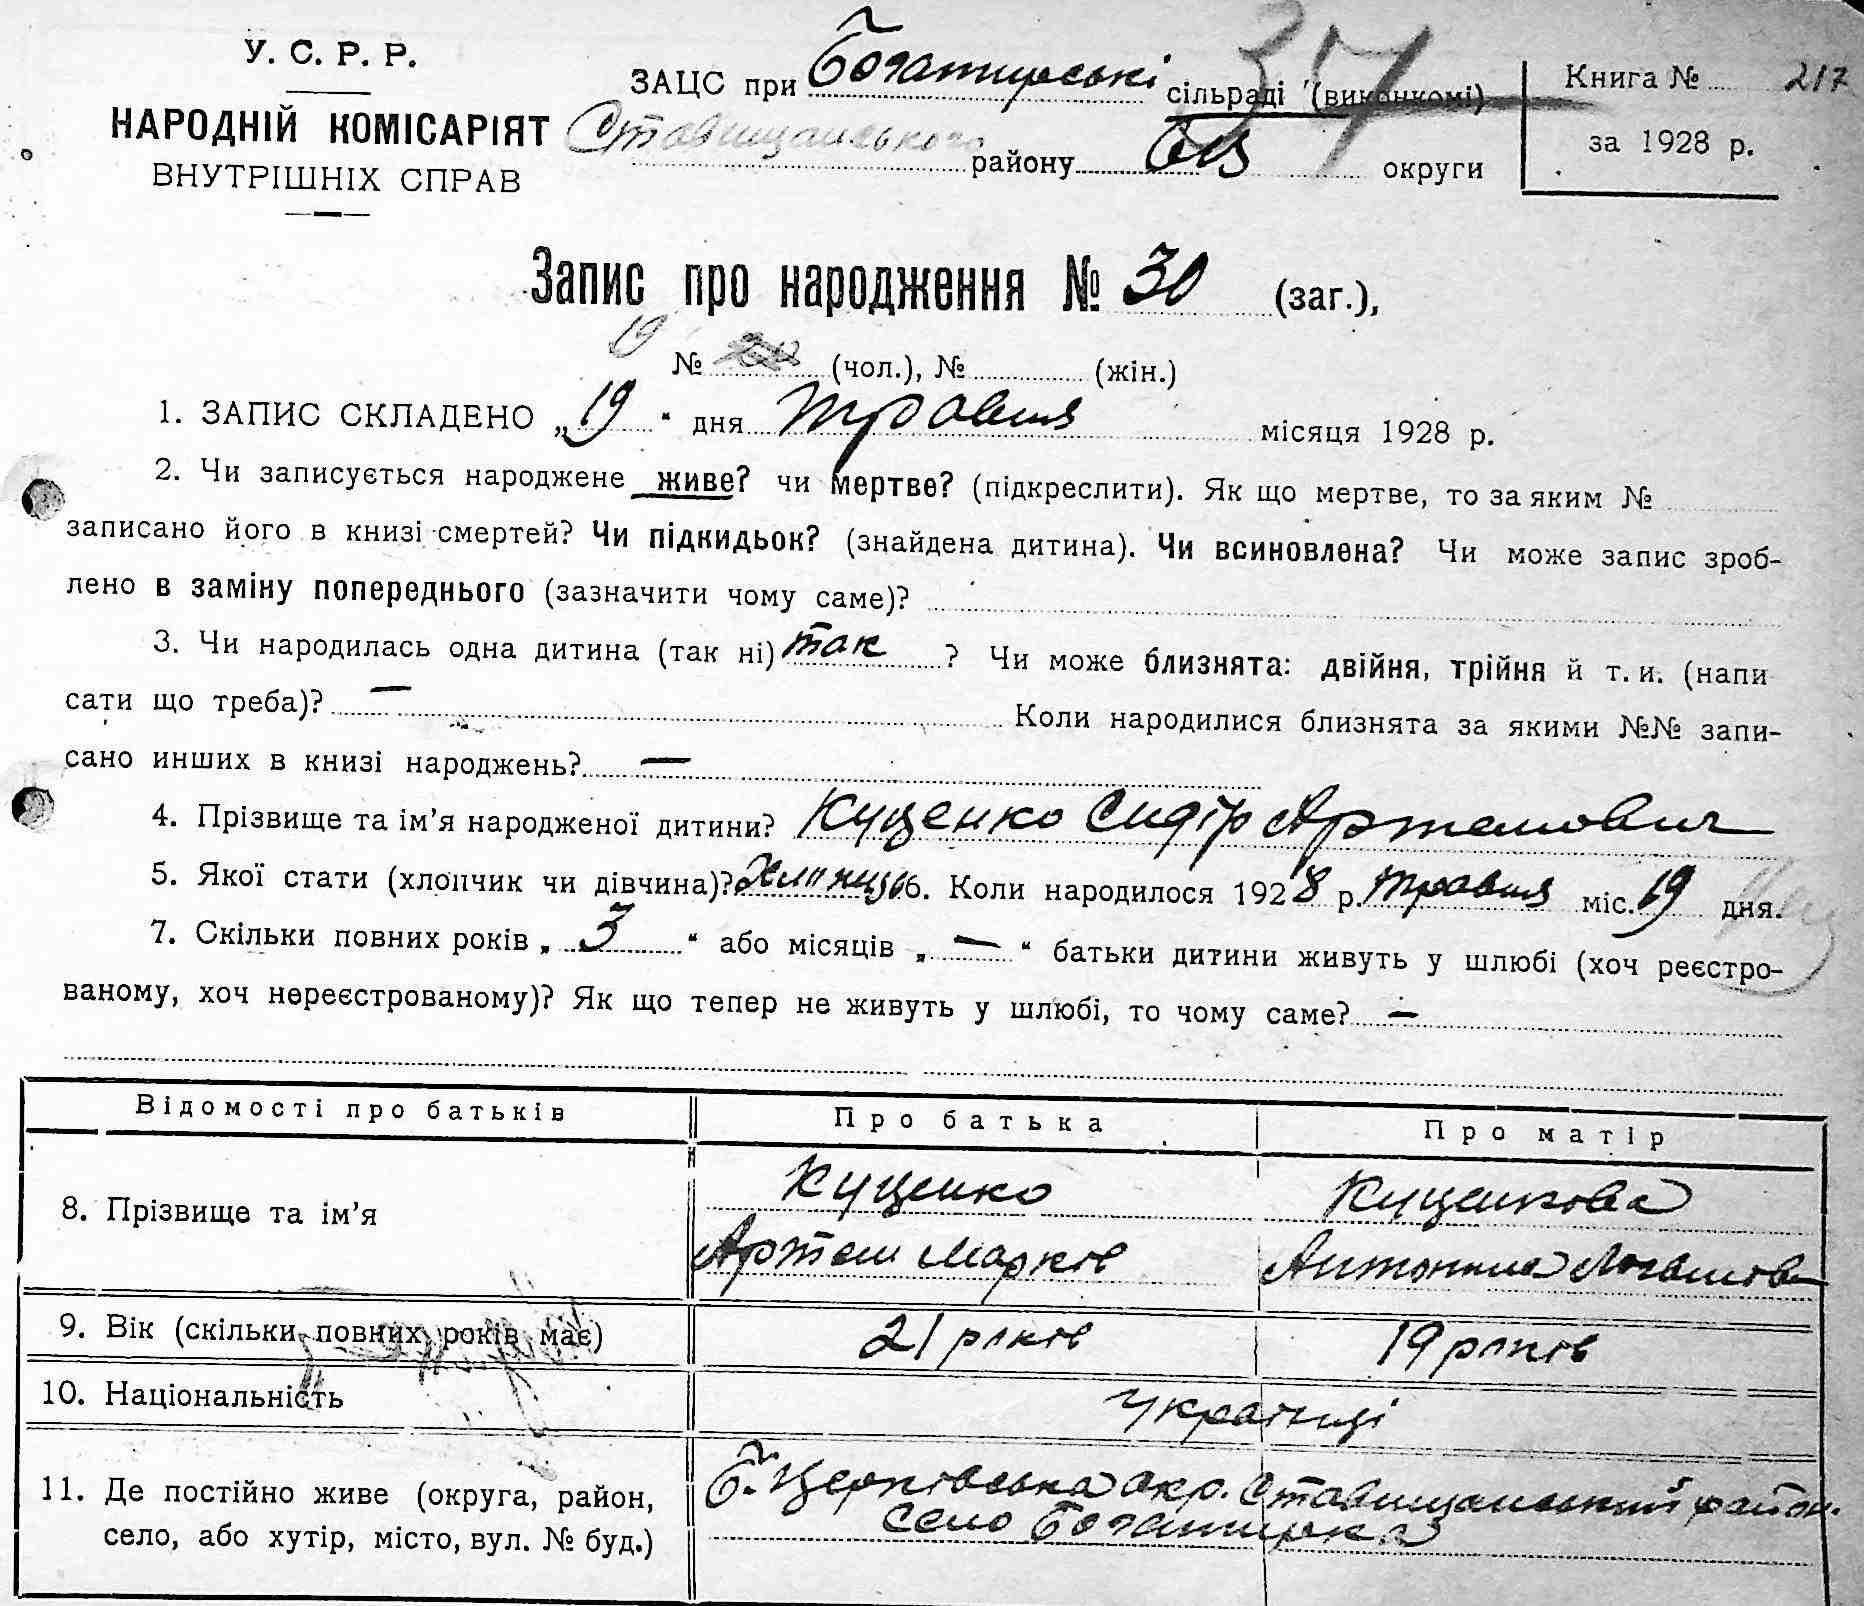 У. С. Р. Р.
НАРОДНІЙ КОМІСАРІЯТ
ВНУТРІШНІХ СПРАВ
ЗАЦС при Богатирській сільраді (виконкомі)
Ставищанського району БЦ округи
37
Книга № 217
за 1928 р.
Запис про народження № 30 (заг.),
19
№ (чол.), № (жін.)
1. ЗАПИС СКЛАДЕНО „19" дня травня місяця 1928 р.
2. Чи записується народжене живе? чи мертве? (підкреслити). Як що мертве, то за яким №
записано його в книзі смертей? Чи підкидьок? (знайдена дитина). Чи всиновлена? Чи може запис зроб-
лено в заміну попереднього (зазначити чому саме)?
3. Чи народилась одна дитина (так ні) так ? Чи може близнята: двійня, трійня й т. и. (напи
сати що треба)? — Коли народилися близнята за якими №№ запи-
сано инших в книзі народжень? —
4. Прізвище та ім'я народженої дитини? Куценко Сидір Артемович
5. Якої стати (хлопчик чи дівчина)? Хлопець 6. Коли народилося 1928 р. травня міс. 19 дня.
7. Скільки повних років „ 3 " або місяців „ — " батьки дитини живуть у шлюбі (хоч реєстро-
ваному, хоч нереєстрованому)? Як що тепер не живуть у шлюбі, то чому саме? —
Відомості про батьків Про батька Про матір
8. Прізвище та ім'я Куценко Куценкова
Артем Марків Антонина Логвинова
9. Вік (скільки повних років має) 21 років 19 років
10. Національність Українці
11. Де постійно живе (округа, район, Б. Церківська окр. Ставищанський район.
село, або хутір, місто, вул. № буд.) село Богатирка